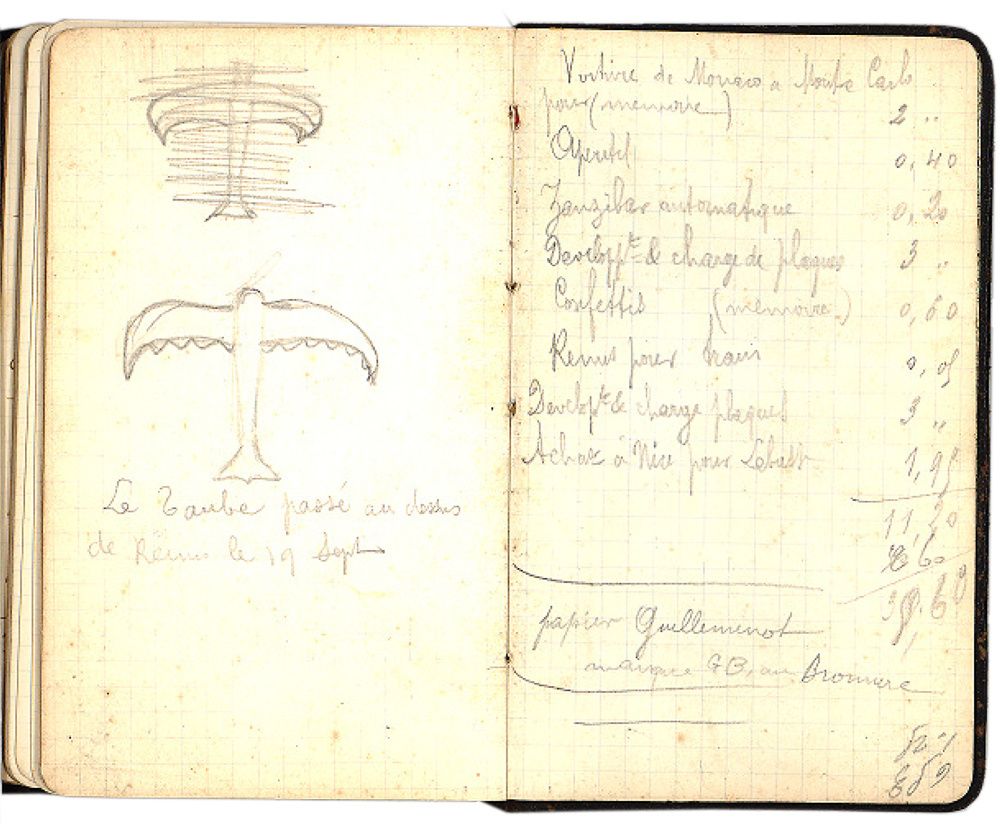 Le Taube passé au dessus
de Reims le 19 Sept
Voiture de Monaco a Monte Carlo
pour (memoire) 2 "
Aperitif 0,40
Zanzibar automatique 0,20
Developp^t & charge de plaques 3 "
Confettis (memoire) 0,60
pour 0,05
Develop^t & charge plaques 3 "
Achat à Nice pour 1,95
11,20
60
papier Guilleminot
marque au Bromure